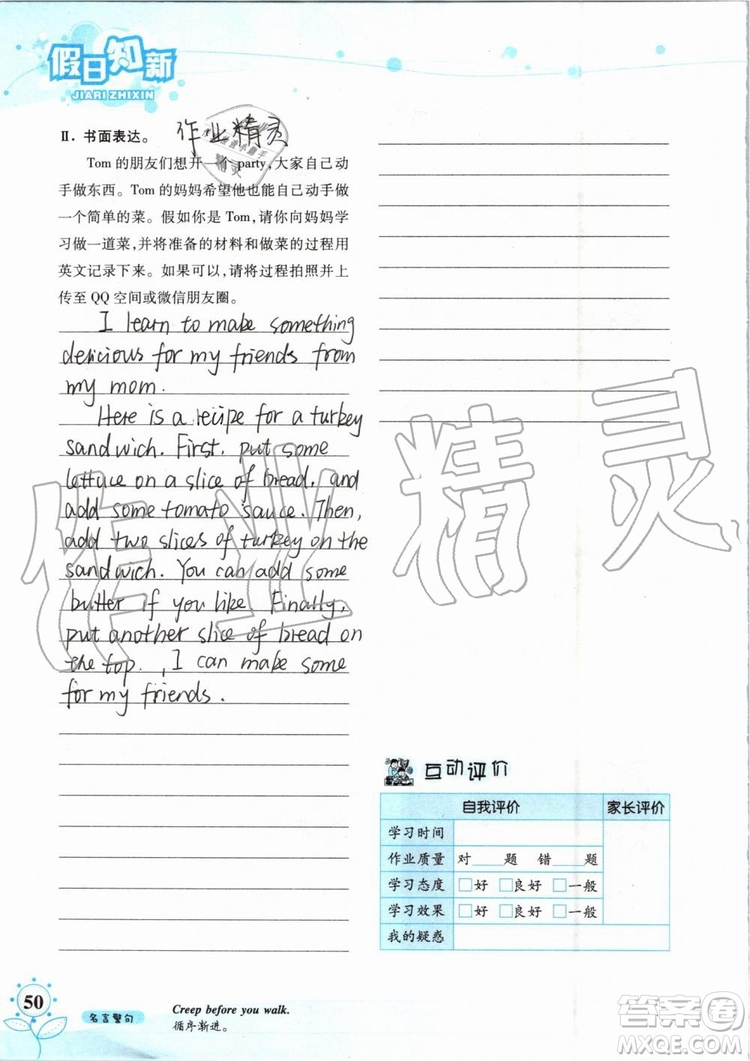 假日知新
JIARI ZHIXIN
II. 书面表达。
作业精灵
Tom 的朋友们想开一个 party,大家自己动
手做东西。Tom 的妈妈希望他也能自己动手做
一个简单的菜。假如你是 Tom,请你向妈妈学
习做一道菜,并将准备的材料和做菜的过程用
英文记录下来。如果可以,请将过程拍照并上
传至 QQ 空间或微信朋友圈。
I learn to make something
delicious for my friends from
my mom.
Here is a recipe for a turkey
sandwich. First, put some
lettuce on a slice of bread, and
add some tomato sauce. Then,
add two slices of turkey on the
sandwich. You can add some
butter if you like. Finally,
put another slice of bread on
the top. , I can make some
for my friends.
作业精灵
互动评价
自我评价 家长评价
学习时间
作业质量 对 题 错 题
学习态度 □好 □良好 □一般
学习效果 □好 □良好 □一般
我的疑惑
50
名言警句
Creep before you walk.
循序渐进。
答案圈
MXQE.COM